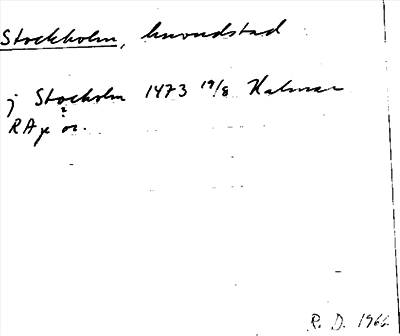 Stockholm, huvudstad
j Stocholm 1473 19/8 Kalmar
RAp or.
R. D. 1962